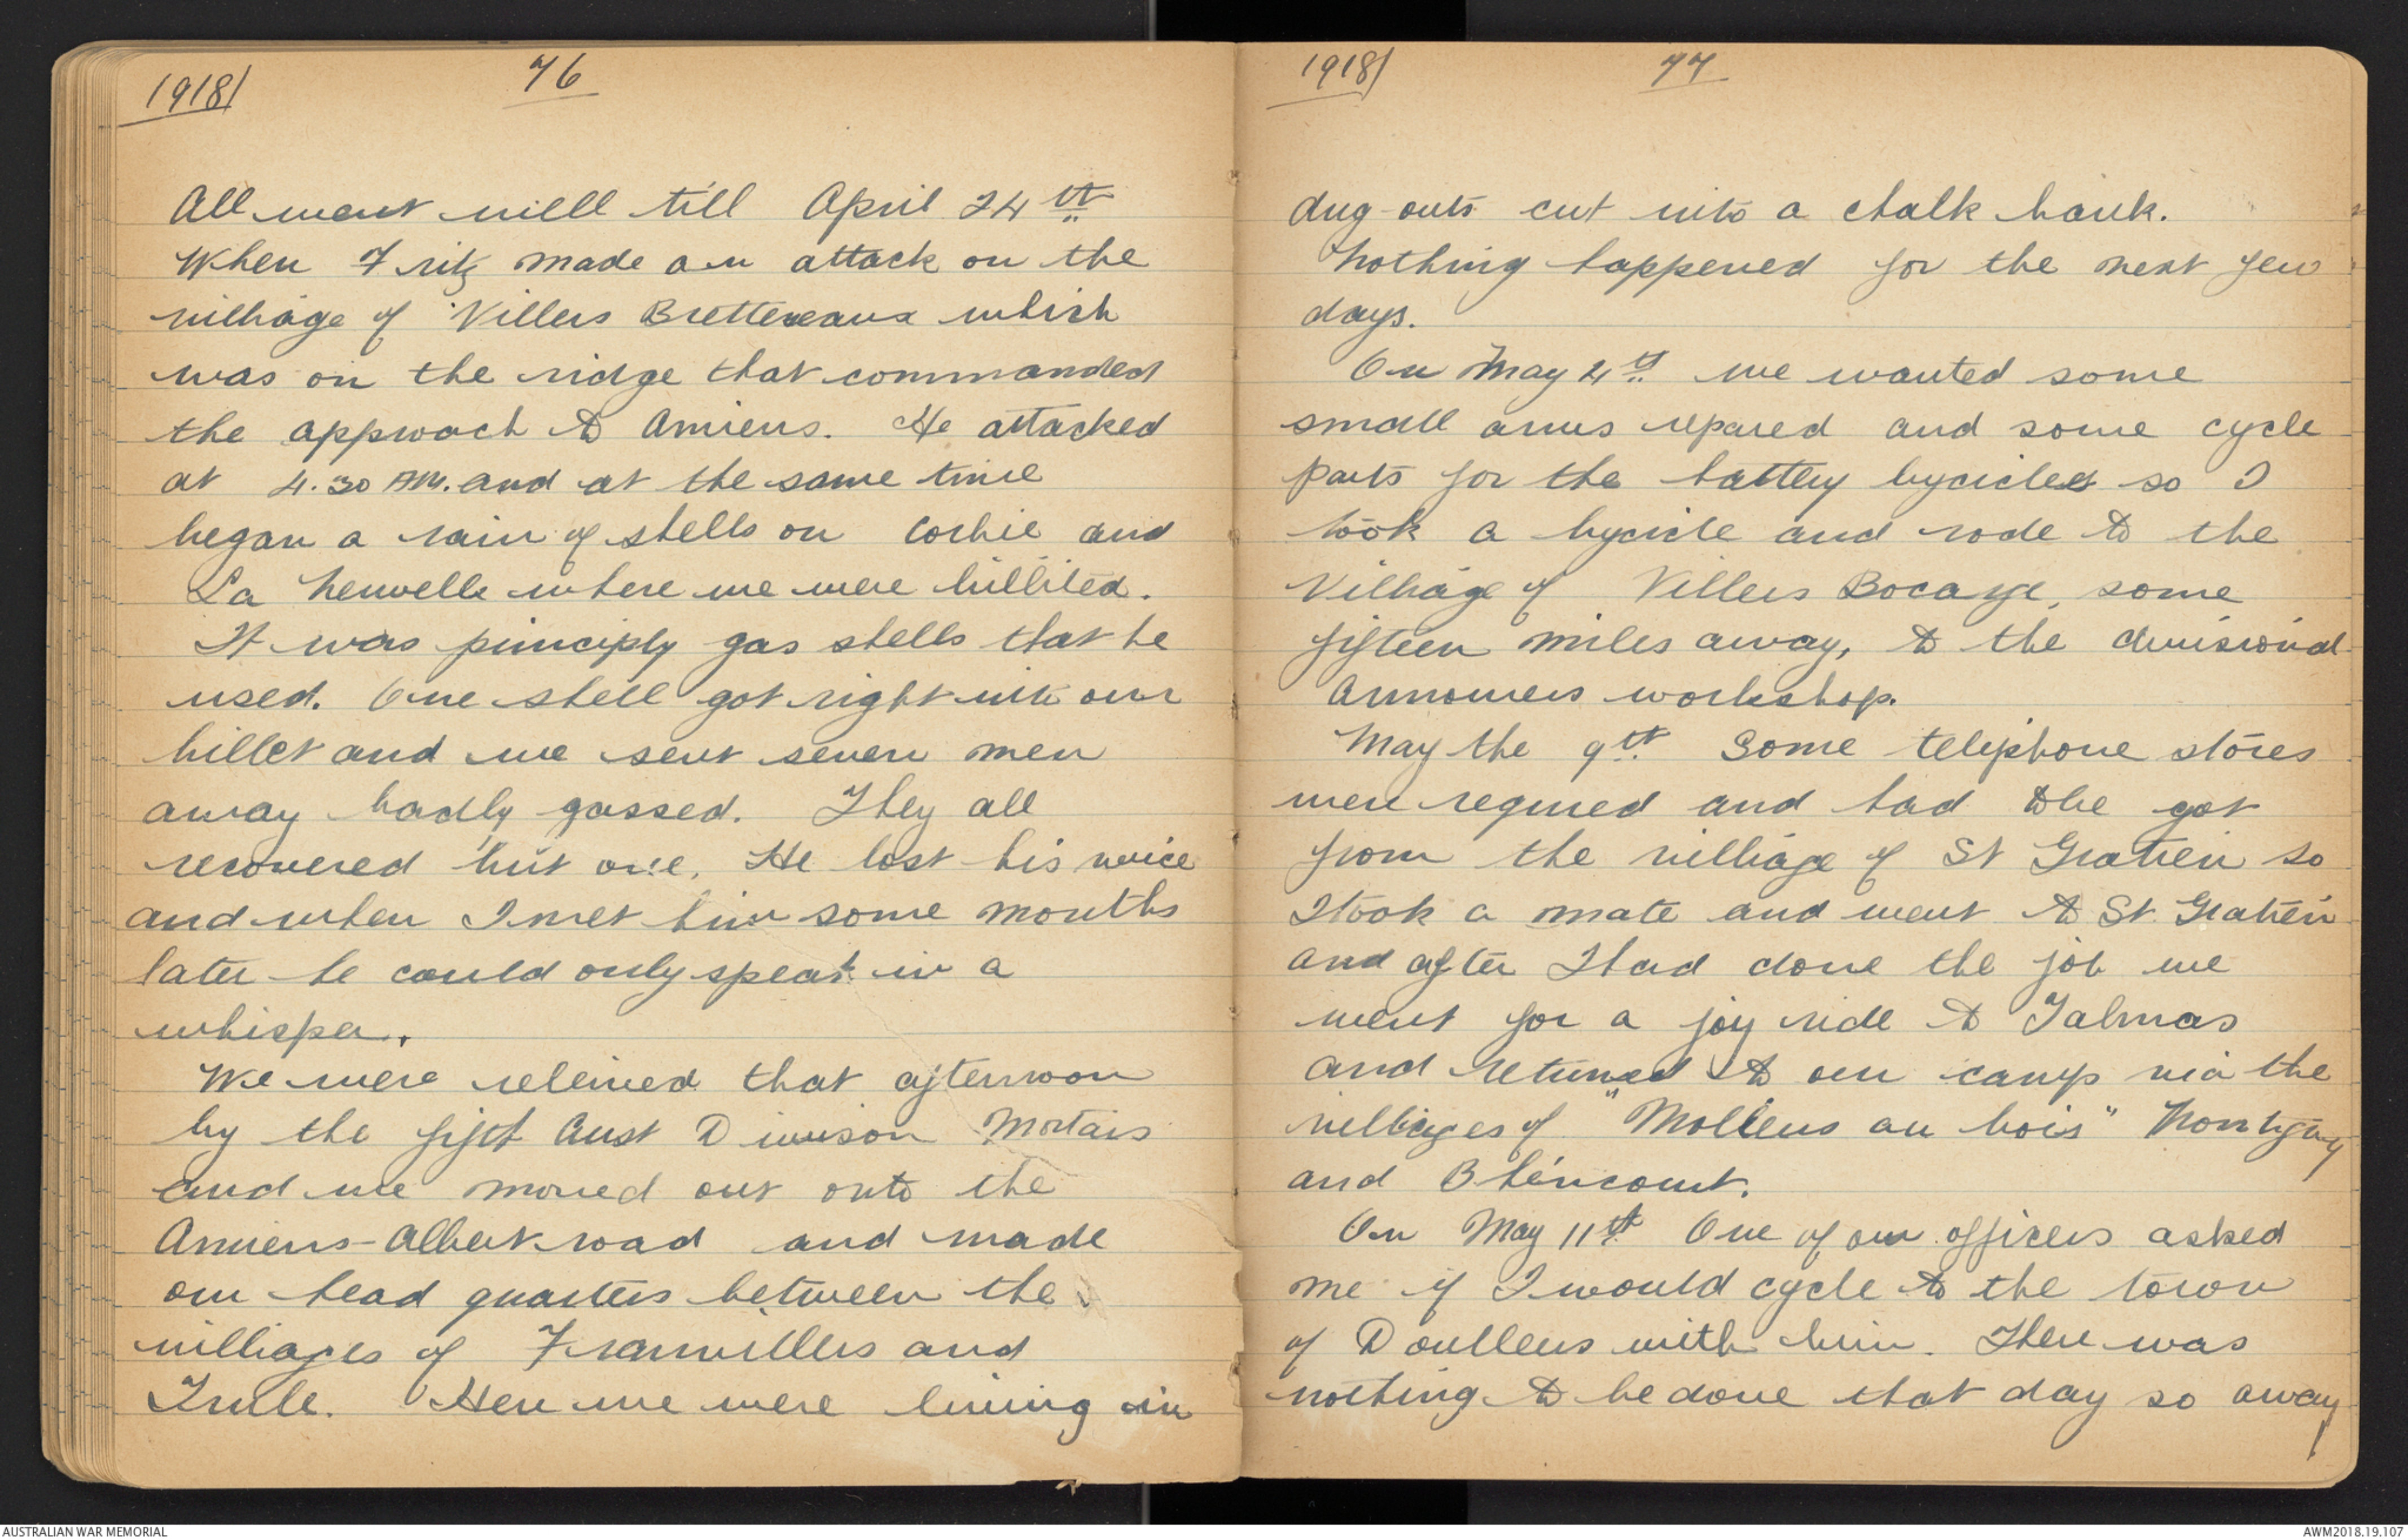 1918/
76
All went well till April 24th
When Fritz made an attack on the
villiage of Villers Bretteneaux which
was on the ridge that commanded
the approach to Amiens. He attacked
at 4.30 AM. and at the same time
began a rain of shells on Corbie and
La Neuvelle where we were billited.
It was principly gas shells that he
used. One shell got right into our
billet and we sent seven men
away badly gassed. They all
recovered but one. He lost his voice
and when I met him some months
later he could only speak in a
whisper.
We were releived that afternoon
by the Aust Division Mortars
and we moved out onto the
Amiens-Albert road and made
our head quarters between the
villiages of Franvillers and
Here we were living in
1918/
77
dug-outs cut into a chalk bank.
Nothing happened for the next few
days.
On May 4th we wanted some
small arms repared and some cycle
parts for the battery bycicles so I
took a bycicle and rode to the
Villiage of Villers Bocage, some
fifteen miles away, to the divisional
Armourers workshop.
May the 9th Some telephone stores
were required and had to be got
from the villiage of St Gratien so
I took a mate and went to St. Gratien
and after I had done the job we
went for a joy ride to Talmas
and returned to our camp via the
villiages of "Molliens au bois" Montigny
and Behencourt.
On May 11th One of our officers asked
me if I would cycle to the town
of Doullens with him. There was
nothing to be done that day so away
AUSTRALIAN WAR MEMORIAL
AWM2018.19.107